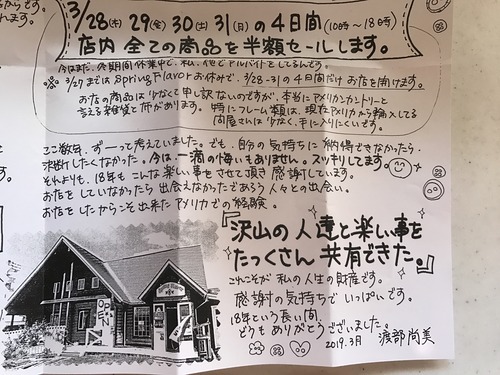 3/28(木) 29(金) 30(土) 31(日)の4日間(10時〜18時)
店内 全ての商品を半額セールします。
今はまだ、冬期間休業中で、私、他でアルバイトをしてるんです。
3/27まではSpring Flavorお休みで、3/28〜31の4日間だけお店を開けます。
お店の商品は少なくて申し訳ないのですが、本当にアメリカンカントリーと
言える雑貨と布があります。特にフレーム類は、現在アメリカから輸入してる
問屋さんは少なく、手に入りにくいです。
ここ数年、ずーっと考えていました。でも、自分の気持ちに納得できなかったら
決断したくなかった。今は一滴の悔いもありません。スッキリしてます。
それよりも、18年もこんな楽しい事をさせて頂き感謝しています。
お店をしていなかったら出会えなかったであろう人々との出会い。
お店をしたからこそ出来たアメリカでの経験。
『沢山の人達と楽しい事を
たっくさん共有できた。』
これこそが私の人生の財産です。
感謝の気持ちでいっぱいです。
18年という長い間、
どうもありがとうございました。
2019.3月 渡部尚美
OPEN